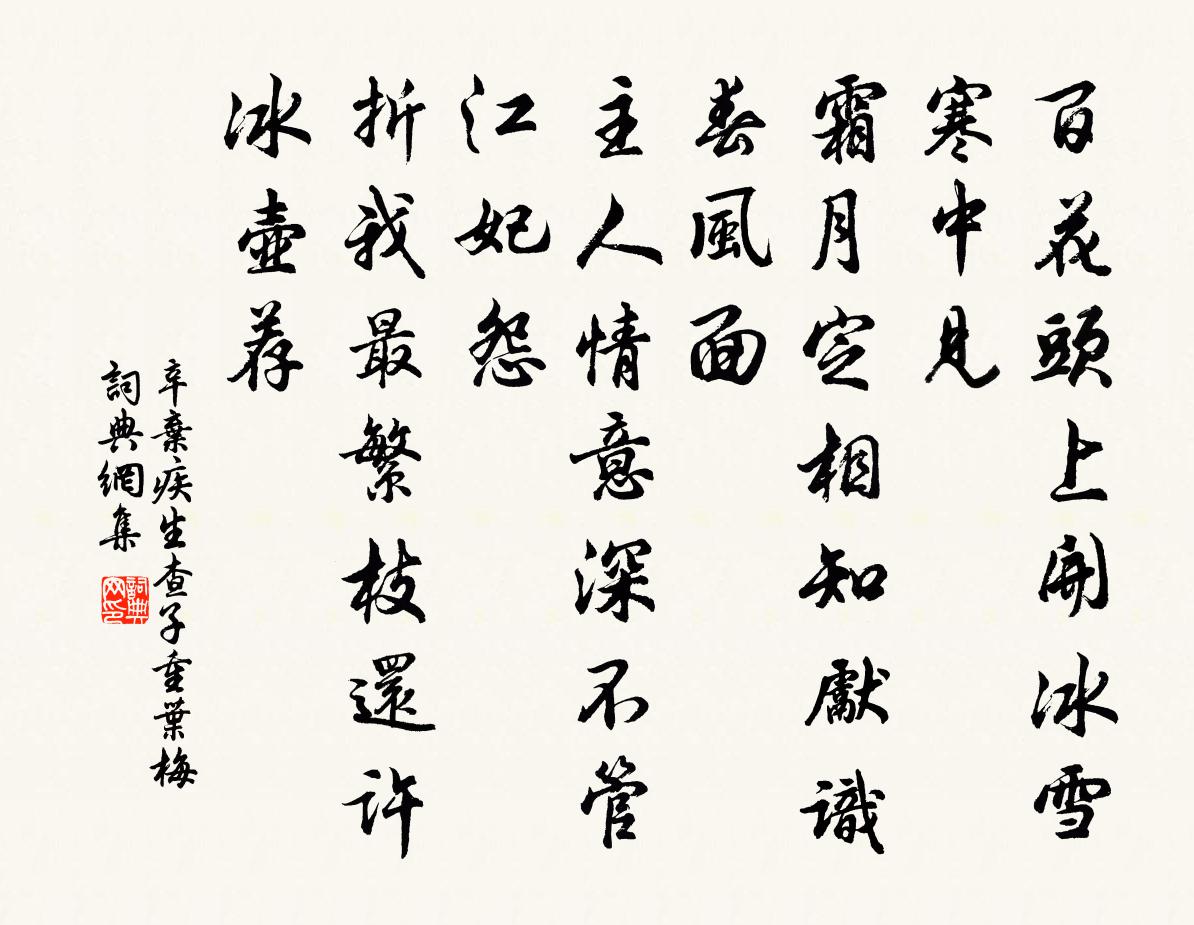 百花頭上開冰雪
寒中見
霜月定相知獻識
春風面
主人情意深不管
江妃怨
折我最繁枝還許
冰壺荐
辛棄疾生查子重葉梅
詞典網集
詞典網印